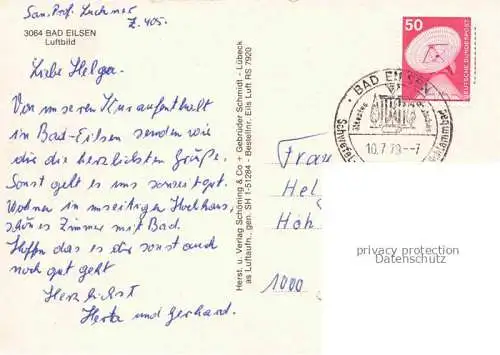 San. Prof. Luckner
Z. 405.
3064 BAD EILSEN
Luftbild
Liebe Helga.
Von unseren Kuraufenthalt
in Bad-Eilsen senden wir
dir die herzlichsten Grüße.
Sonst geht es uns soweit gut.
Wohnen in Hochhaus,
schönes Zimmer mit Bad.
Hoffen das es dir sonst auch
noch gut geht
Herzlichst
Herta und Gerhard.
Herst. u. Verlag Schöning & Co + Gebrüder Schmidt - Lübeck
as Luftaufn., gen. SH 1-51284 - Bestellnr. Eils Luft RS 7920
50
DEUTSCHE BUNDESPOST
BAD EILSEN
10.7.79.--7
Frau
Hel
Höh
1000
privacy protection
Datenschutz